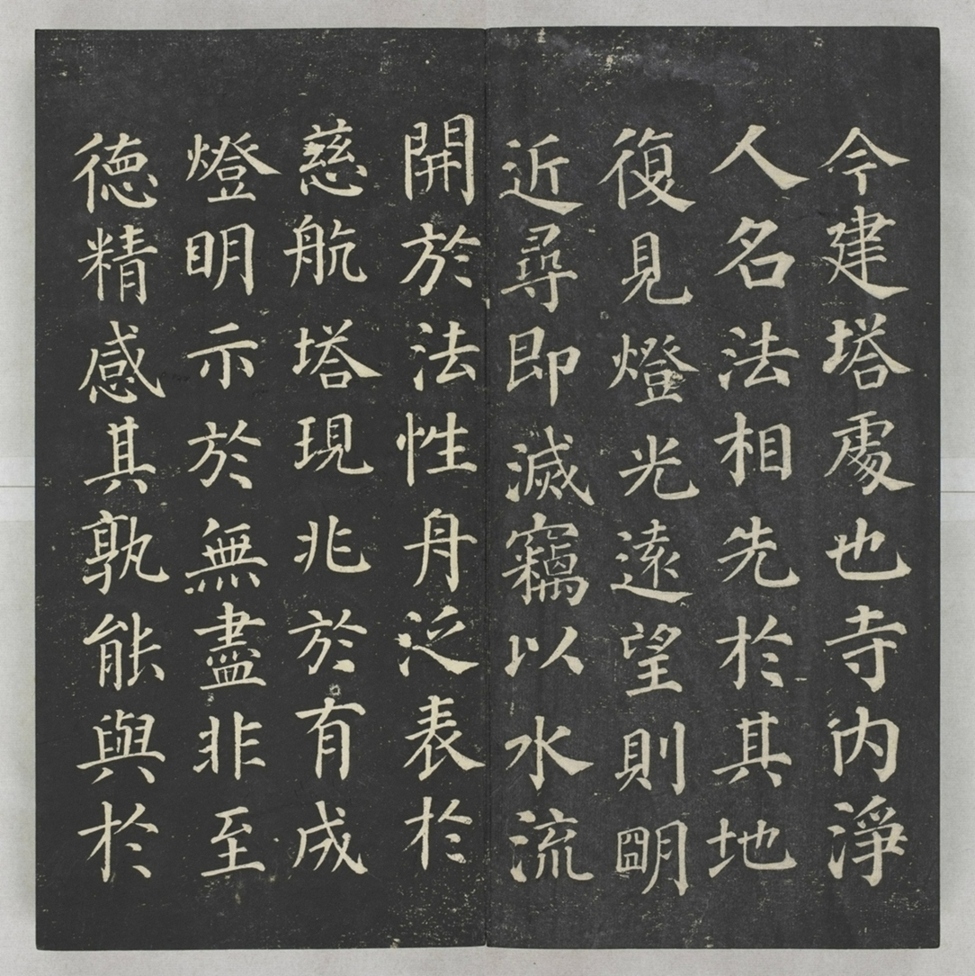 今建塔處也寺内淨
人名法相先於其地
復見燈光遠望則明
近尋即滅竊以水流
開於法性舟泛表於
慈航塔現兆於有成
燈明示於無盡非至
德精感其孰能與於